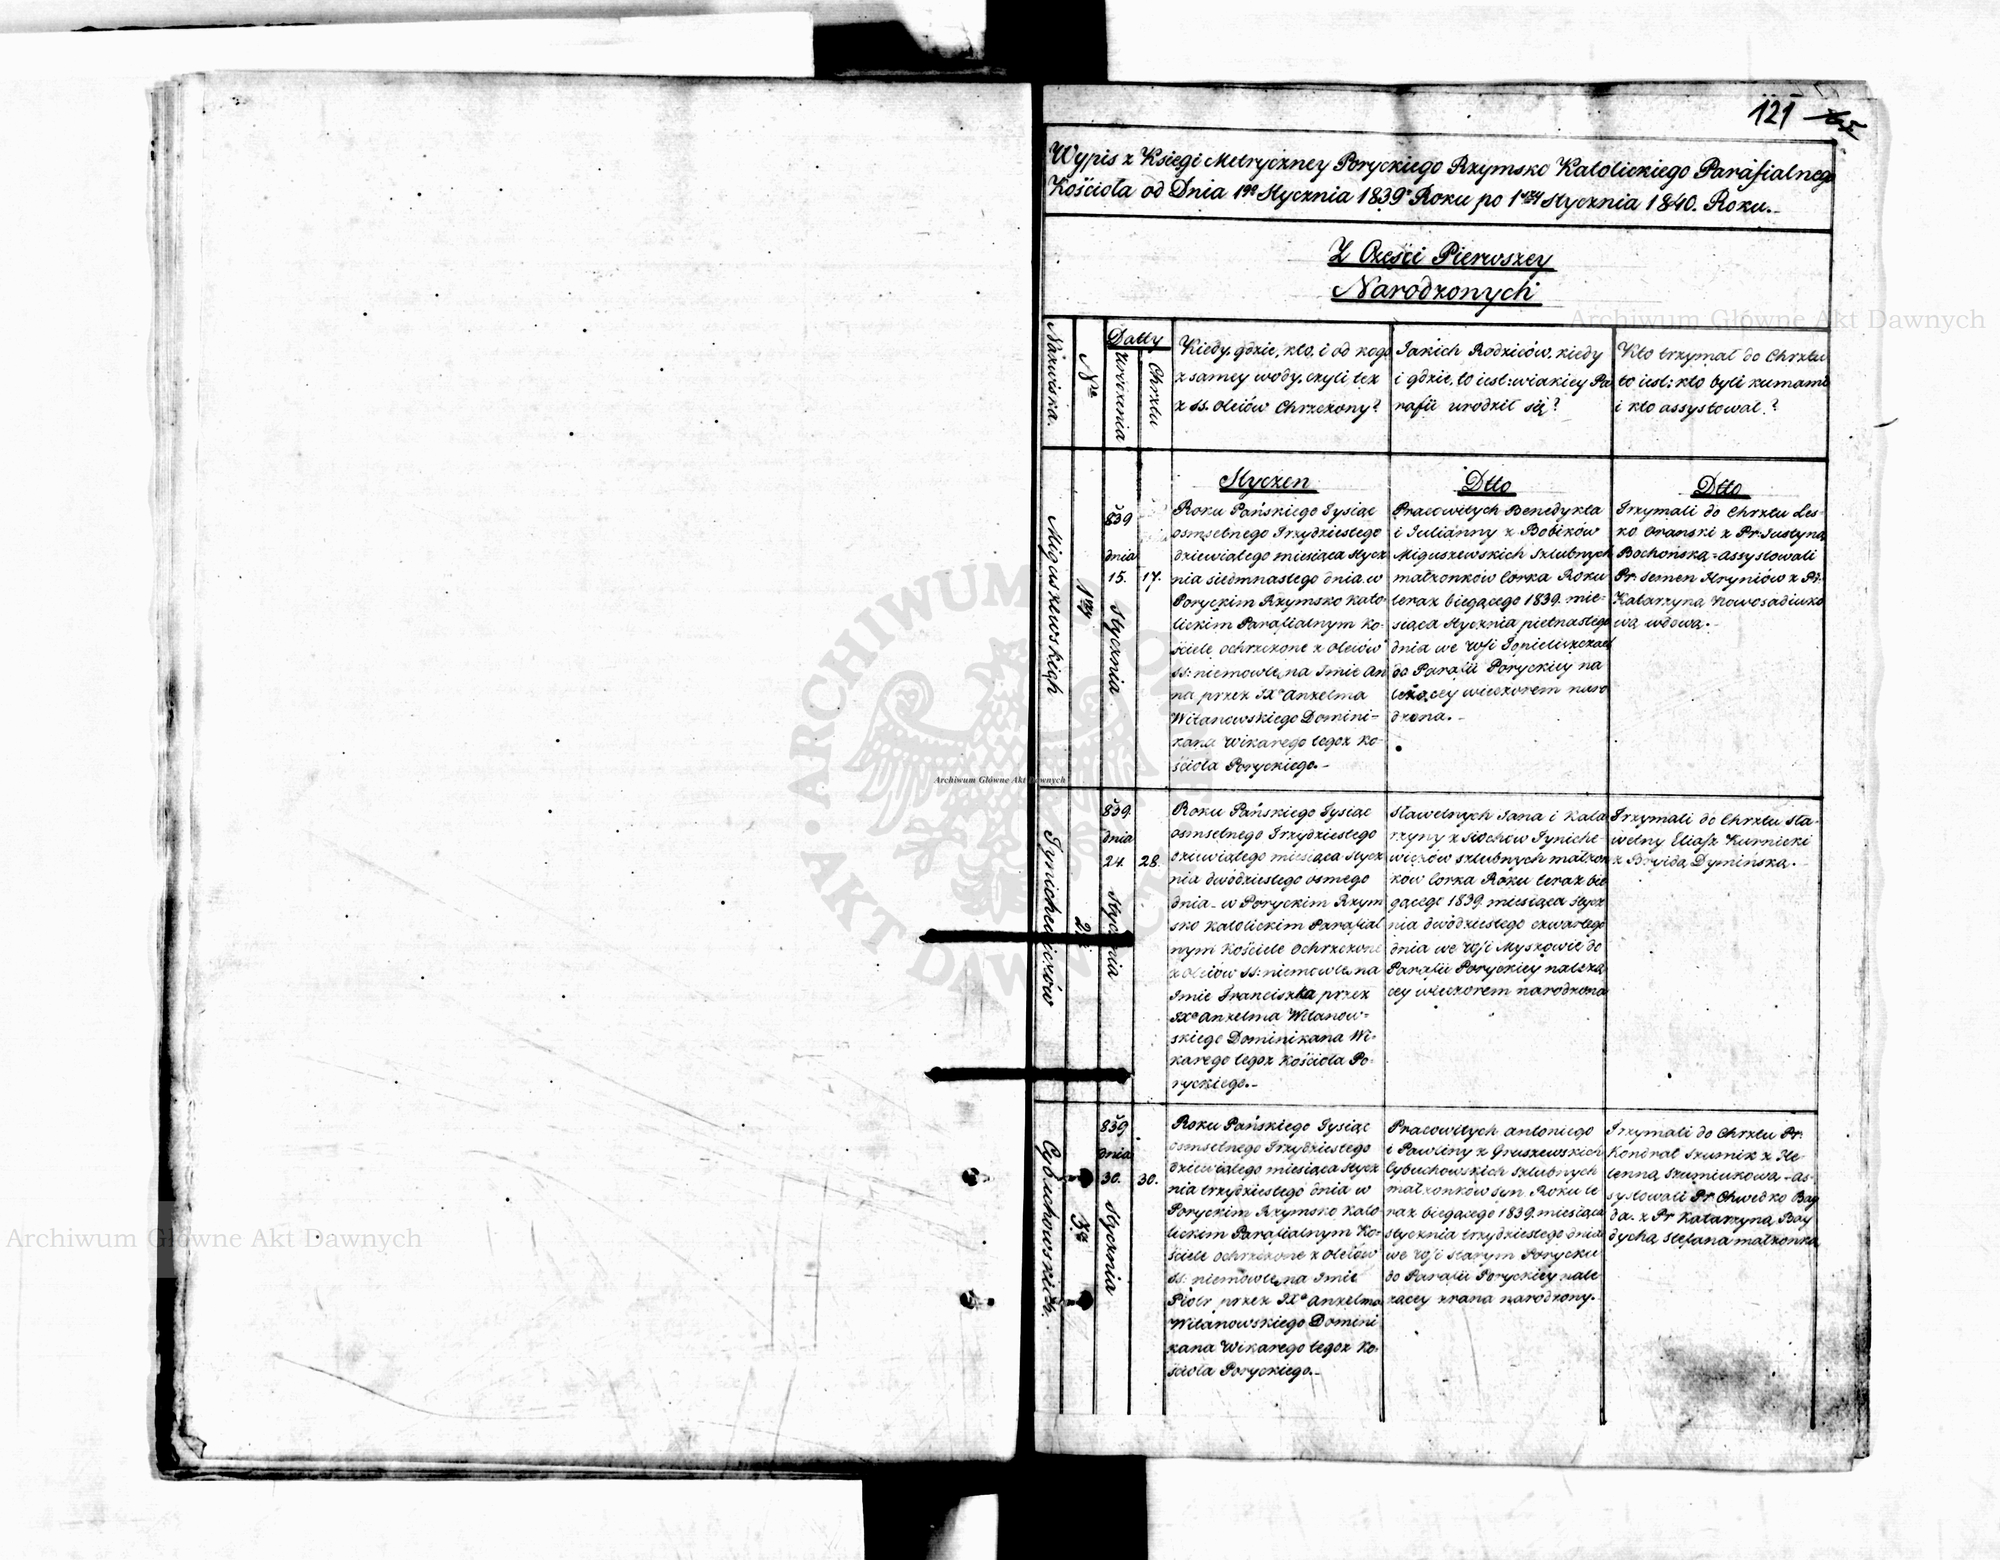 121
Wypis z Księgi Metryczney Poryckiego Rzymsko Katolickiego Parafialnego
Kościoła od Dnia 1go Stycznia 1839o Roku po 1szy Stycznia 1840. Roku.-
Z Części Pierwszey
Narodzonych
Nazwiska.
Nro
Datty
Urodzenia
Chrztu
Kiedy, gdzie, kto, i od kogo
z samey wody, czyli też
z SS. Oleiów Chrzczony?
Jakich Rodziców, kiedy
i gdzie, to iest: w iakiey Pa
rafii urodził się?
Kto trzymał do Chrztu
to iest: kto byli kumami
i kto assystował?
Styczeń
Dtto
Dtto
Miguszewskich
1szy
839
dnia
15.
Stycznia
17.
Roku Pańskiego Tysiąc
osmsetnego Trzydziestego
dziewiątego miesiąca Stycz
nia siedmnastego dnia w
Poryckim Rzymsko Kato-
lickim Parafialnym Ko-
ściele ochrzczone z Oleiów
SS: niemowle, na Imie An
na przez JXa Anzelma
Witanowskiego Domini-
kana Wikarego tegoż Ko-
ścioła Poryckiego.-
Pracowitych Benedykta
i Julianny z Bobików
Miguszewskich Szlubnych
małżonków Corka Roku
teraz biegącego 1839. mie-
siąca Stycznia piętnastego
dnia we Wsi
do Parafii Poryckiey na
leżącey wieczorem naro
dzona.-
Trzymali do Chrztu Les-
ko Oranski z Pr: Justyną
Bochońską = Assystowali
Pr: Semen Hryniów z Pr:
Katarzyną Nowosadiuko
wą wdową.-
Tynichewiczów
2
839.
dnia
24.
Stycznia
28.
Roku Pańskiego Tysiąc
osmsetnego Trzydziestego
dziewiątego miesiąca Stycz
nia dwódziestego osmego
dnia - w Poryckim Rzym
sko Katolickim Parafial
nym Kościele ochrzczone
z Oleiów SS: niemowle, na
Imie Franciszka przez
JXa Anzelma Witanow-
skiego Dominikana Wi-
karego tegoż Kościoła Po-
ryckiego.-
Sławetnych Jana i Kata
rzyny z Sochów Tyniche
wiczów szlubnych małżon
ków Corka Roku teraz bie
gącego 1839. miesiąca Stycz
nia dwódziestego czwartego
dnia we Wsi Myszowie do
Parafii Poryckiey należą
cey wieczorem narodzona
Trzymali do Chrztu Sła-
wetny Eliasz Kurnicki
z Dymińską.-
Cybuchowskich.
3
839
dnia
30.
Stycznia
30.
Roku Pańskiego Tysiąc
osmsetnego Trzydziestego
dziewiątego miesiąca Stycz
nia trzydziestego dnia w
Poryckim Rzymsko Kato
lickim Parafialnym Ko-
ściele ochrzczone z Oleiów
SS: niemowle, na Imie
Piotr przez JXa Anzelma
Witanowskiego Domini
kana Wikarego tegoż Ko-
ścioła Poryckiego.-
Pracowitych Antoniego
i Pawliny z Gruszewskich
Cybuchowskich szlubnych
małżonków syn Roku te
raz biegącego 1839. miesiąca
Stycznia trzydziestego dnia
we Wsi Starym Porycku
do Parafii Poryckiey nale
żącey zrana narodzony.-
Trzymali do Chrztu Pr:
Kondrat Szumik z He-
lenną Szumiukową - As-
systowali Pr: Chwedko Bay
da. z Pr: Katarzyną Bay
dychą Stefana małżonką
Archiwum Główne Akt Dawnych
Archiwum Główne Akt Dawnych
Archiwum Główne Akt Dawnych